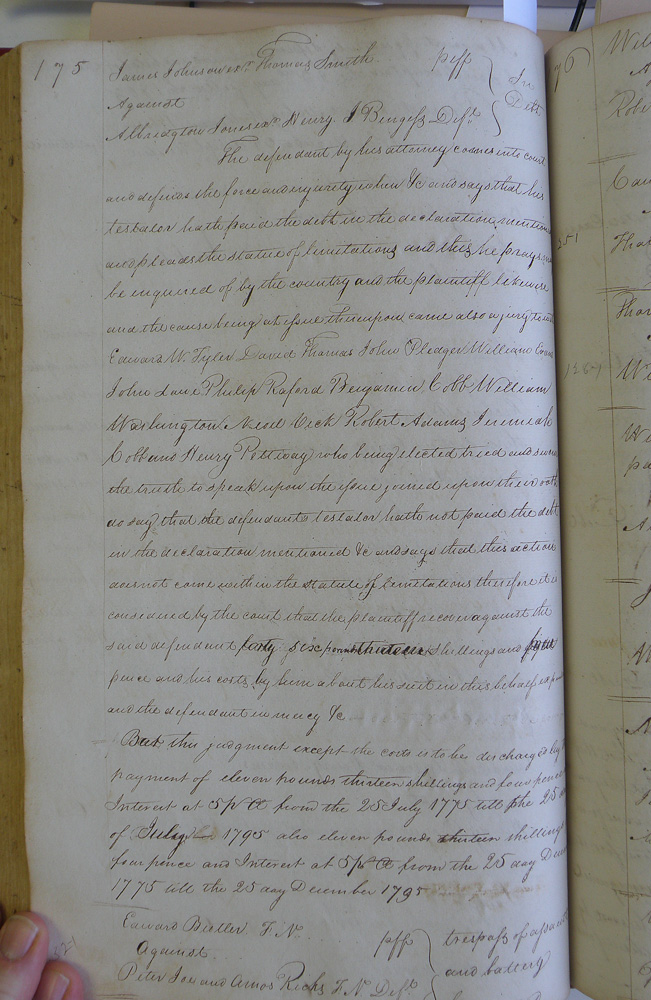 175
James Johnson exr. Thomas Smith plff } In
Against Debt
Albridgton Jones exr. Henry J Burgess Deft. }
The defendant by his attorney comes into court
and defends the force and injury when &c and says that his
testator hath paid the debt in the declaration mention
and pleads the statue of limitations and this he prays may
be inquired of by the country and the plaintiff likewise
and the cause being at issue thereupon came also a jury to wit
Edward W. Tyler David Thomas John Pledger William Evans
John Lane Philip Raford Benjamin Cobb William
Washington Need Vick Robert Adams Jeremiah
Cobb and Henry Pettway who being elected tried and sworn
the truth to speak upon the issue joined upon their oath
do say that the defendants testator hath not paid the debt
in the declaration mentioned &c and says that this action
does not come within the statute of limitations therefore it is
considered by the court that the plaintiff recover against the
said defendant forty six pounds thirteen shillings and
pence and his costs by him about his suit in this behalf
and the defendant in mercy &c
But this judgment except the costs is to be discharged by
payment of eleven pounds thirteen shillings and four pence
Interest at 5 pr Ct from the 25 July 1775 till the 25
of July 1795 also eleven pounds thirteen shillings
four pence and Interest at 5 pr Ct from the 25 day Dece
1775 till the 25 day December 1795
Edward Butler F. N. plff } trespass of assault
Against and battery
Peter Fox and Amos Ricks F. N Deft
76
Wil
351
1267